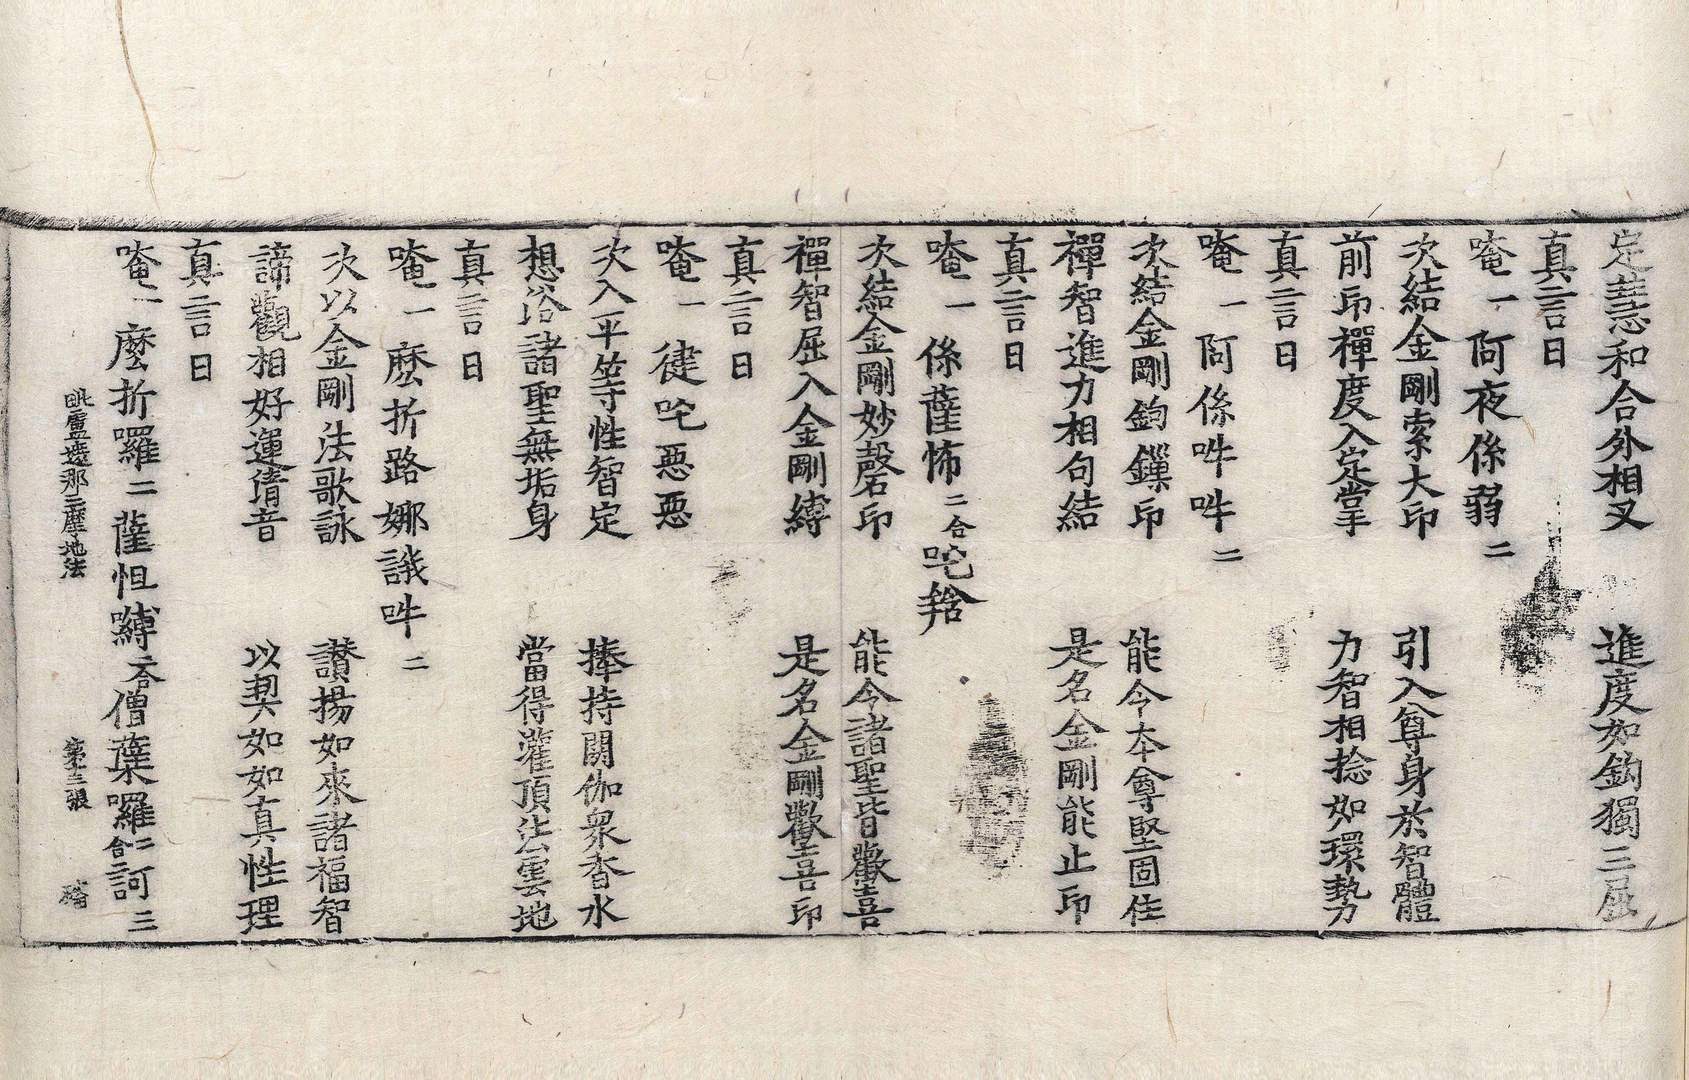 定慧和合外相叉　進度如鈎獨三屈
真言曰
唵一阿夜係弱二
次結金剛索大印　引入尊身於智體
前印禪度入定掌　力智相捻如環勢
真言曰
唵一阿係吽吽二
次結金剛鉤鏁印　能令本尊堅固住
禪智進力相句結　是名金剛能止印
真言曰
唵一係薩怖二合吒𤙖
次結金剛妙磬印　能令諸聖皆歡喜
禪智屈入金剛縛　是名金剛歡喜印
真言曰
唵一健吒惡惡
次入平等性智定　捧持閼伽衆香水
想浴諸聖無垢身　當得灌頂法雲地
真言曰
唵一麽折路娜誐吽二
次以金剛法歌詠　讃揚如來諸福智
諦觀相好運清音　以契如如真性理
真言曰
唵一麽折囉二薩怛嚩二合僧蘗囉二合訶三
毗盧遮那三摩地法　第三張